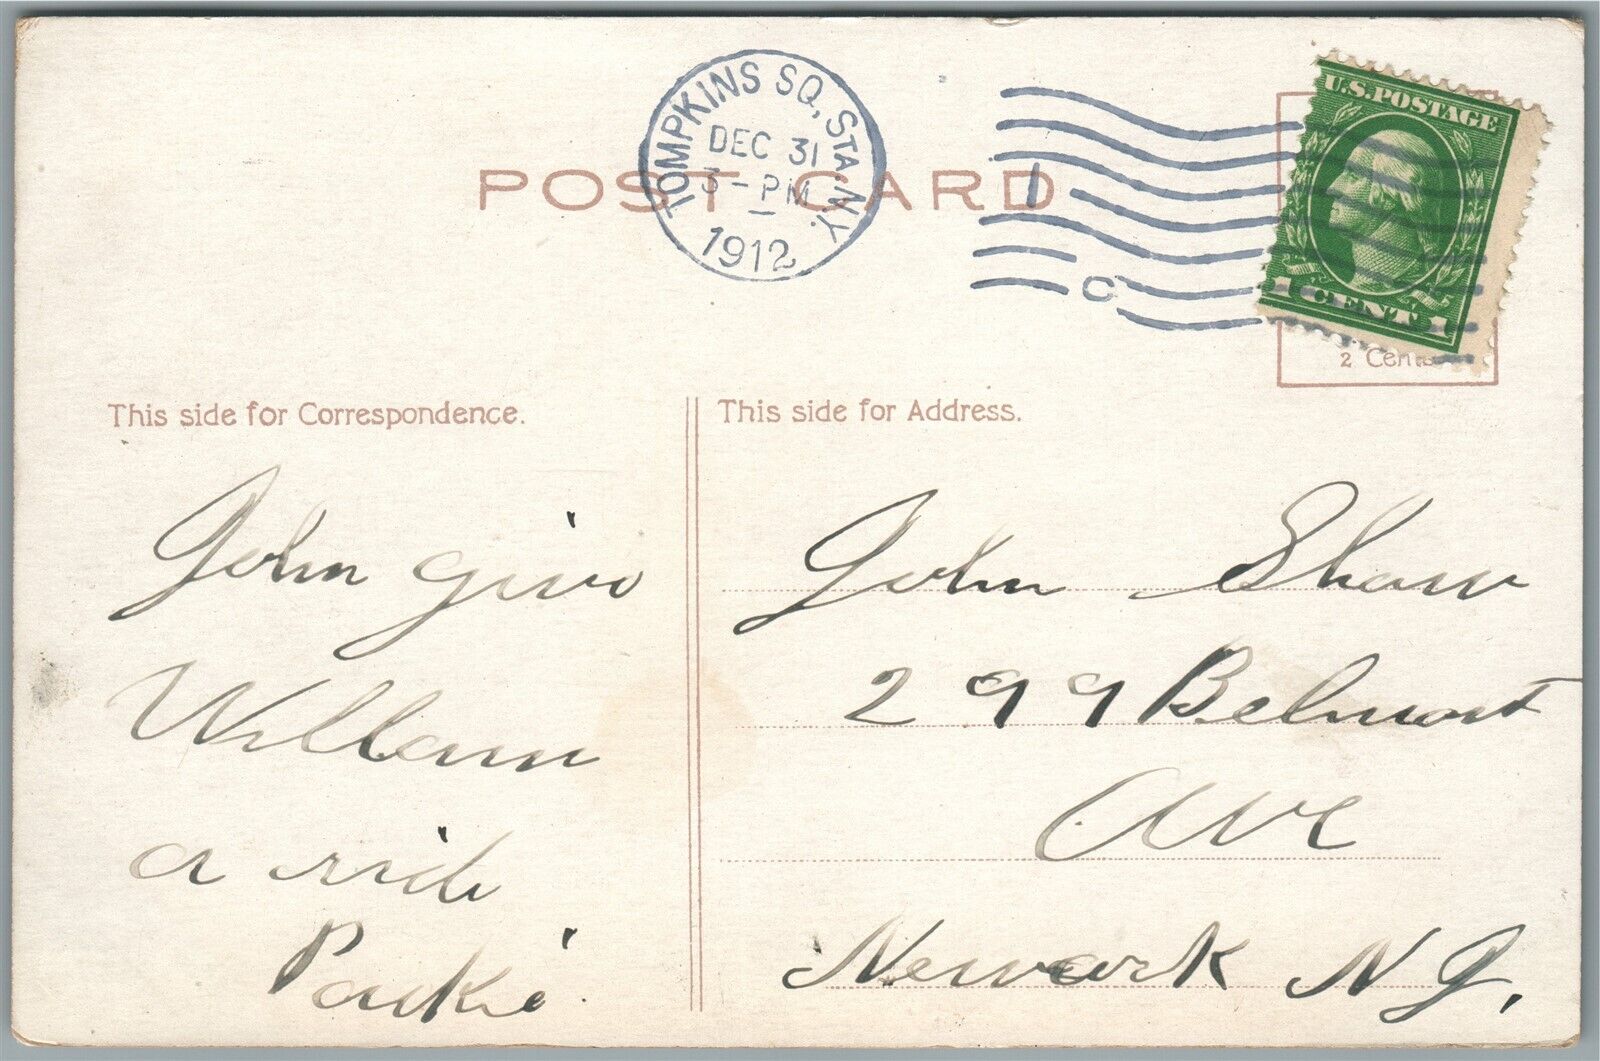 POST CARD
TOMPKINS SQ., STA. N.Y.
DEC 31
3 - PM
1912
1
C
U.S. POSTAGE
1 CENT 1
2 Cents
This side for Correspondence.
This side for Address.
John give
Willam
a ride
John Shaw
299 Belmont
Ave
Newark N J.